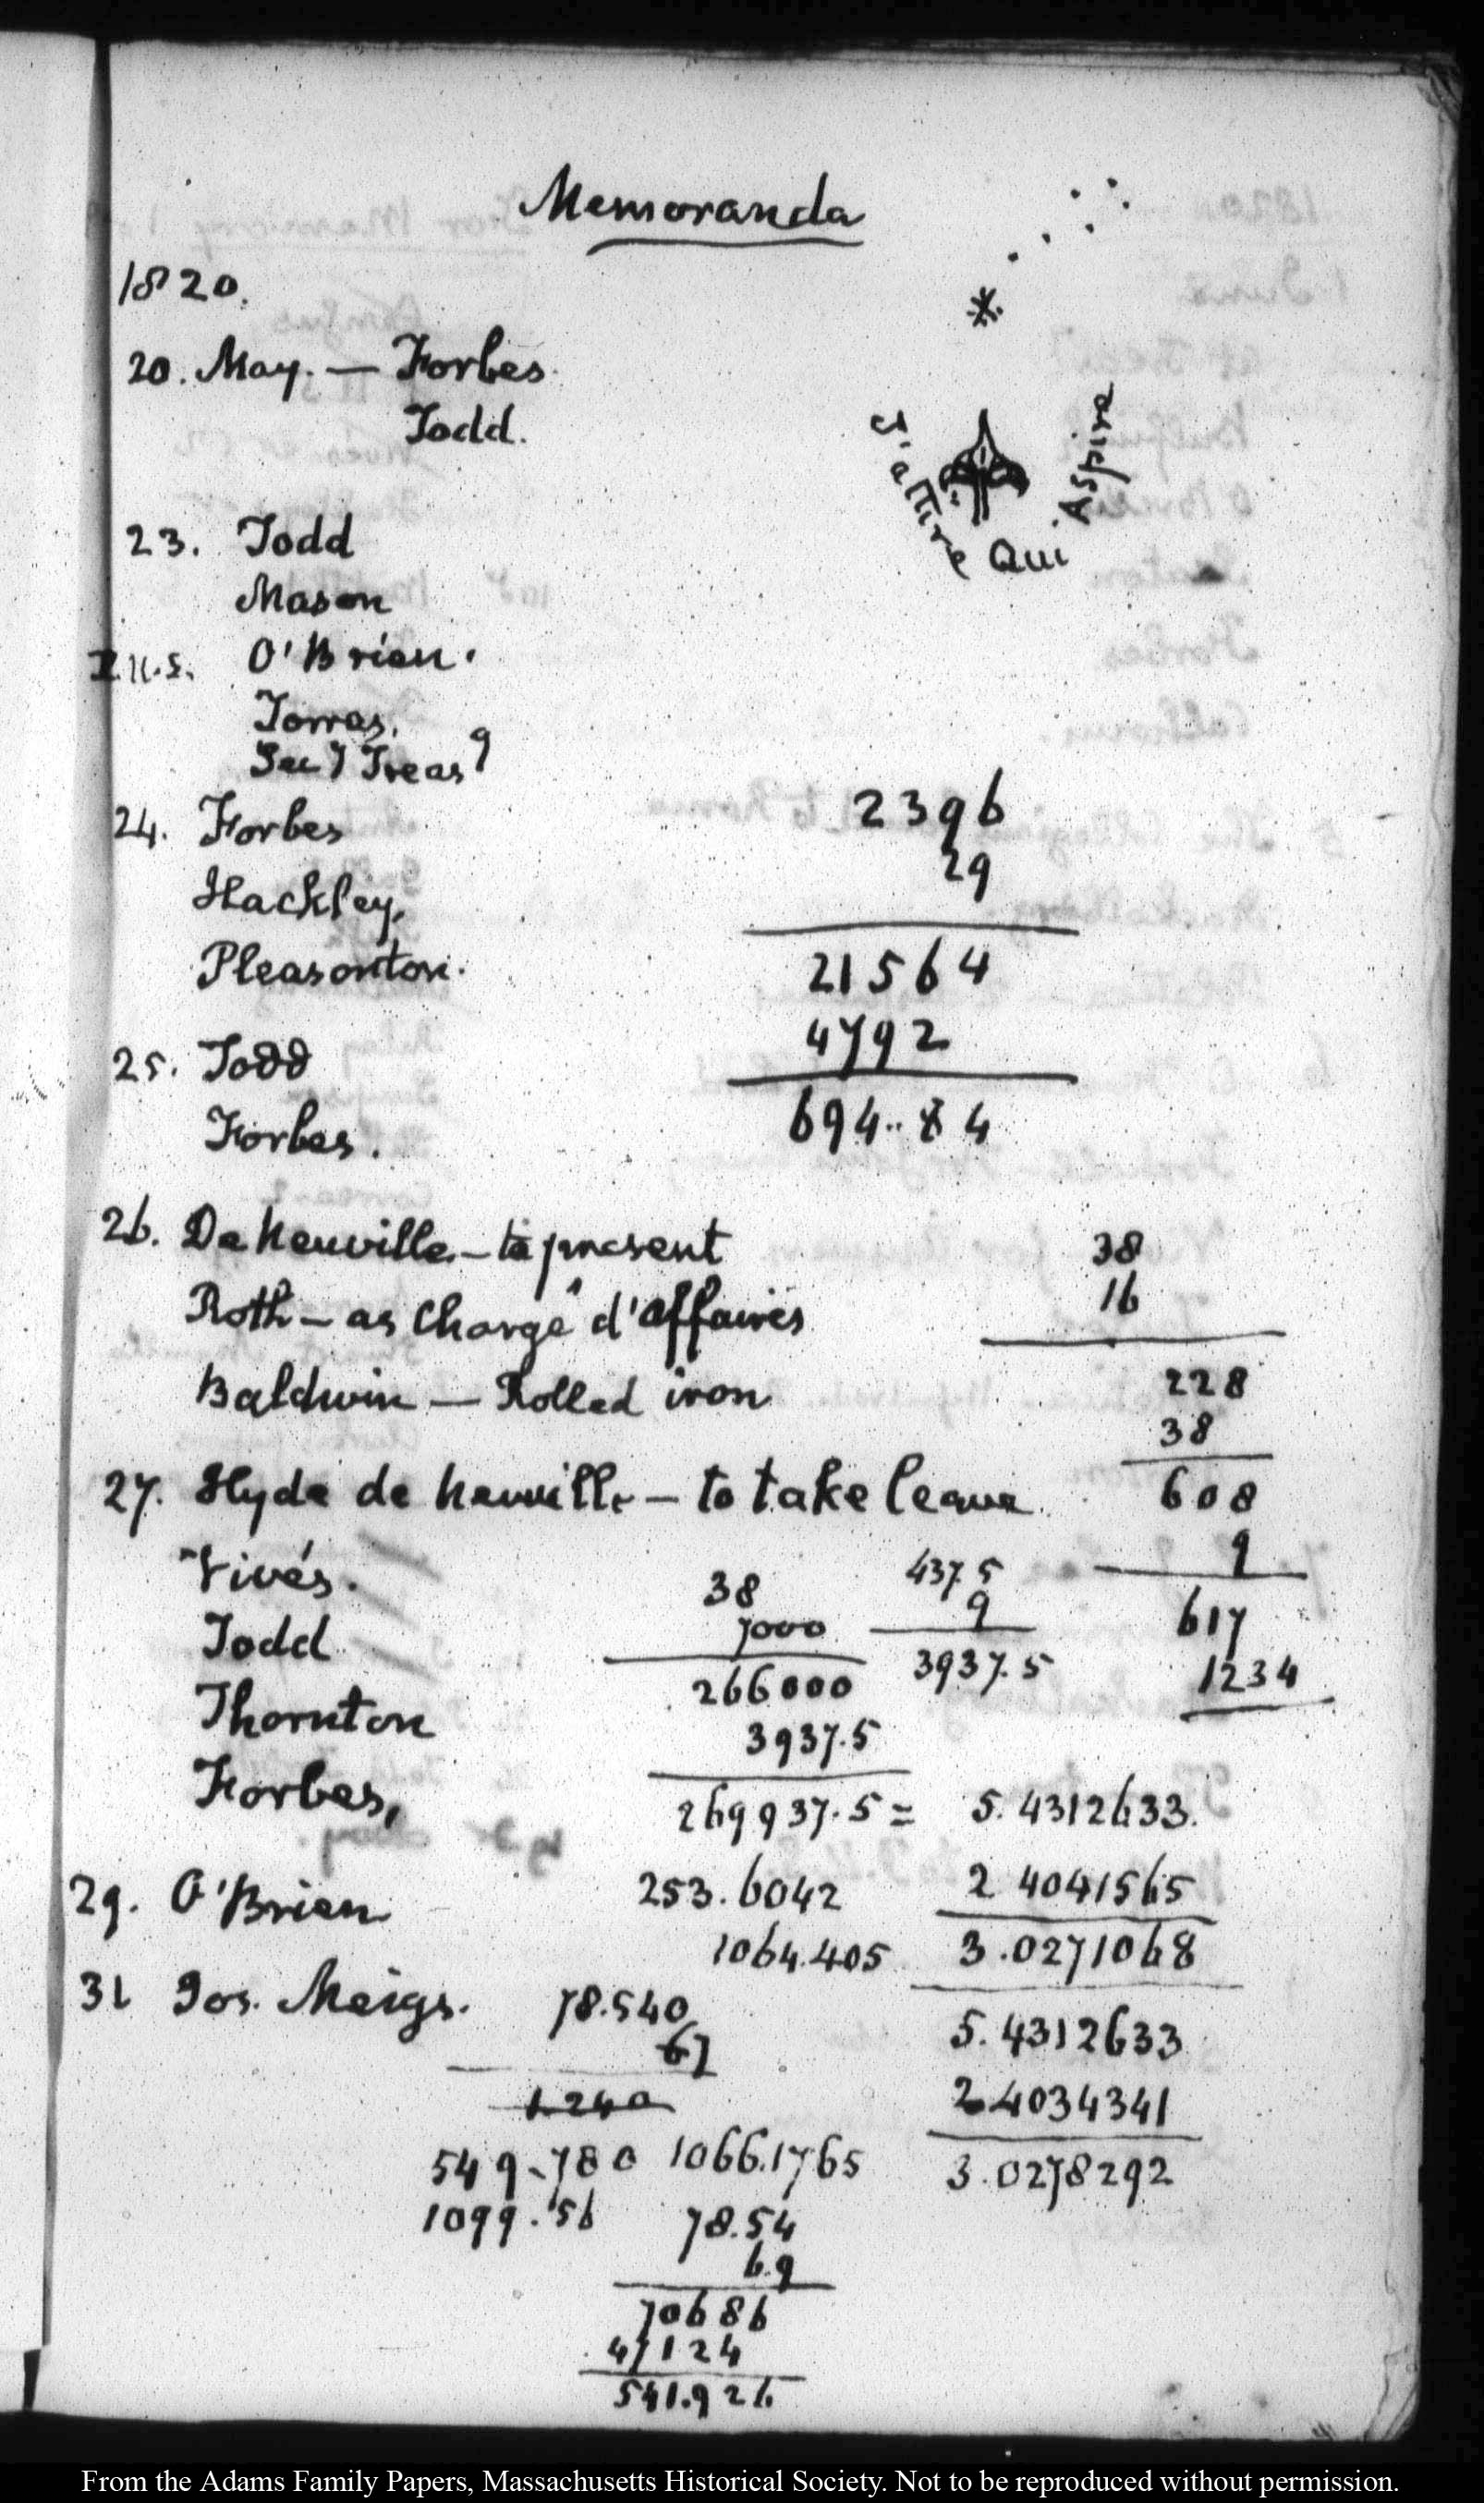 Memoranda
1820.
20. May. — Forbes.
Todd.
J'attire Qui Aspire
23. Todd
Mason
O'Brien.
Torras.
Secy Treasy
24. Forbes
Hackley,
Pleasonton.
2396
29
21564
4792
694..84
25. Todd
Forbes.
26. De Neuville — to present
Roth — as Chargé d'affaires
Baldwin — Rolled iron
38
16
228
38
608
9
617
1234
27. Hyde de Neuville — to take leave.
Vivés.
Todd
Thornton
Forbes,
38
7000
266000
3937.5
269937.5 = 5.4312633.
437.5
9
3937.5
29. O'Brien
253.6042
1064.405
2.4041565
3.0271068
31 Jos. Meigs.
78.540
67
1.240
549.780
1099.56
1066.1765
5.4312633
2.4034341
3.0278292
78.54
6.9
70686
47124
541.926